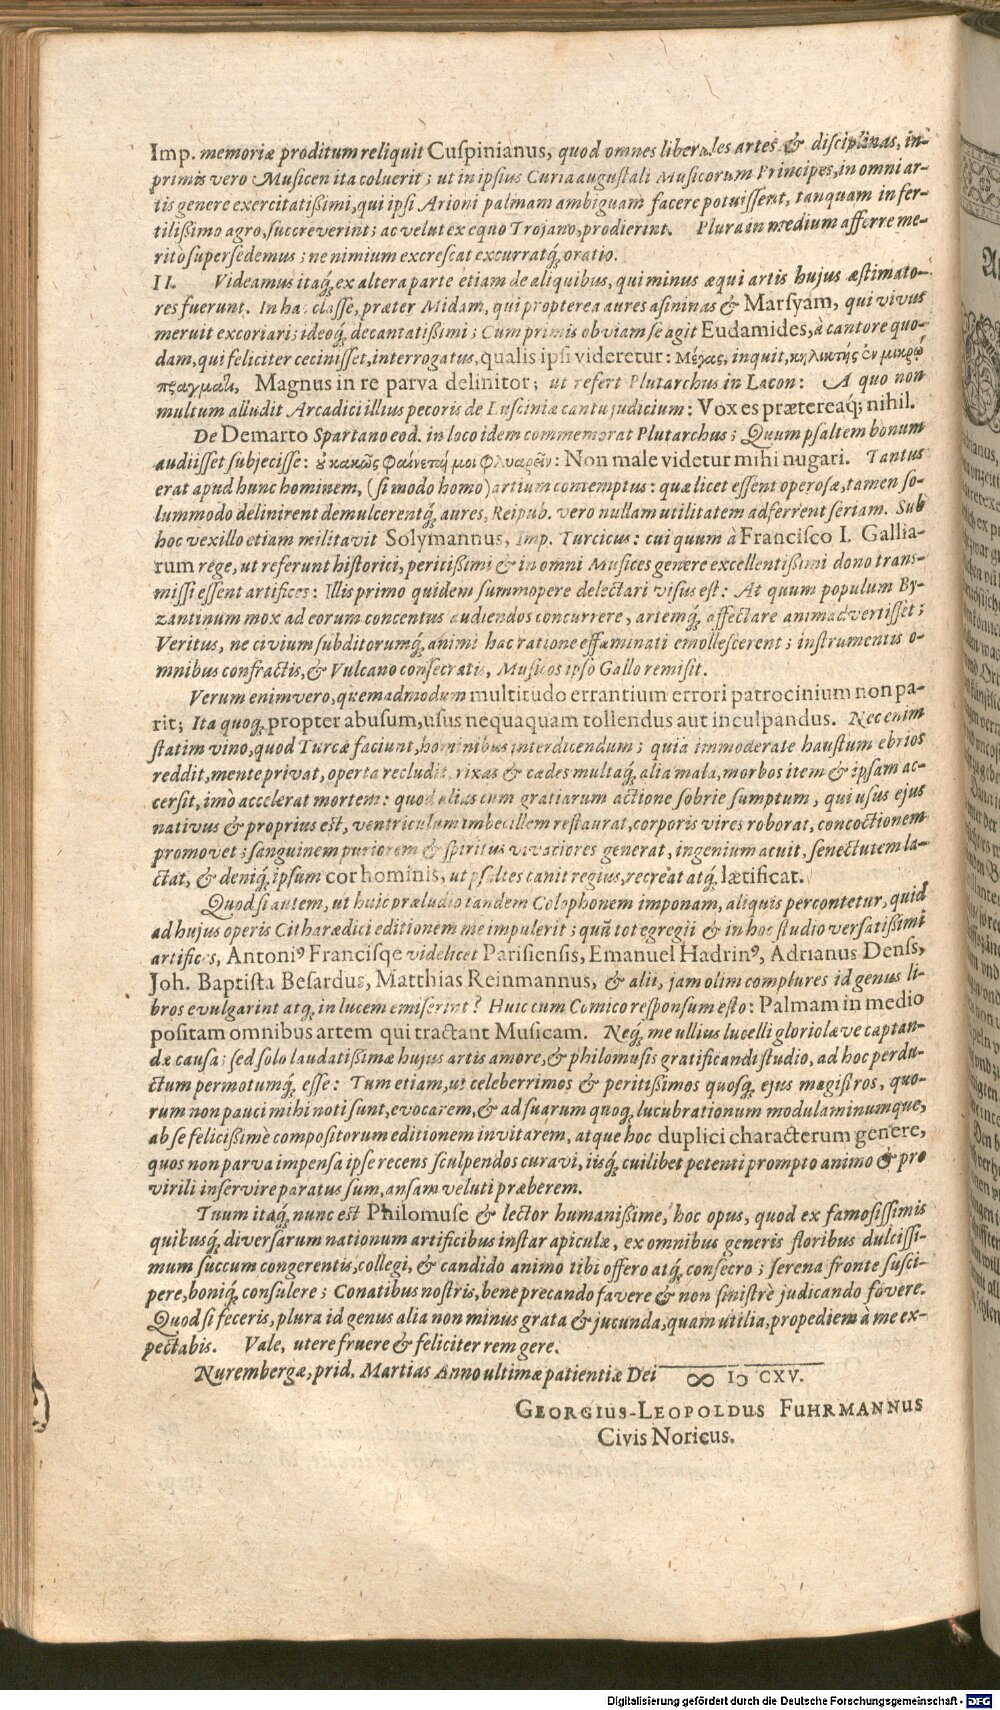 Imp. memoriæ proditum reliquit Cuſpinianus, quod omnes liberales artes & diſciplinas, in-
primis vero Muſicen ita coluerit; ut in ipſius Curia auguſtali Muſicorum Principes, in omni ar-
tis genere exercitatißimi, qui ipſi Arioni palmam ambiguam facere potuiſſent, tanquam in fer-
tilißimo agro, ſuccreverint; ac velut ex equo Trojano, prodierint. Plura in medium afferre me-
ritò ſuperſedemus; ne nimium excreſcat excurratq́ oratio.
II. Videamus itaq́, ex altera parte etiam de aliquibus, qui minus æqui artis hujus æſtimato-
res fuerunt. In hac claſſe, præter Midam, qui propterea aures aſininas & Marſyam, qui vivus
meruit excoriari; ideoq́, decantatißimi; Cum primis obviam ſe agit Eudamides, à cantore quo-
dam, qui feliciter ceciniſſet, interrogatus, qualis ipſi videretur: Μέγας, inquit, κηλικτής ἐν μικρῷ
πράγματι, Magnus in re parva delinitor; ut refert Plutarchus in Lacon: A quo non
multum alludit Arcadici illius pecoris de Luſciniæ cantu judicium: Vox es prætereaq́; nihil.
De Demarto Spartano eod. in loco idem commemorat Plutarchus; Quum pſaltem bonum
audiiſſet ſubjeciſſe: οὐ κακῶς φαίνεταί μοι φλυαρεῖν: Non male videtur mihi nugari. Tantus
erat apud hunc hominem, (ſi modo homo) artium contemptus: quæ licet eſſent operoſæ, tamen ſo-
lummodo delinirent demulcerentq́, aures, Reipub. vero nullam utilitatem adferrent ſeriam. Sub
hoc vexillo etiam militavit Solymannus, Imp. Turcicus: cui quum à Franciſco I. Gallia-
rum rege, ut referunt hiſtorici, peritißimi & in omni Muſices genere excellentißimi dono trans-
miſſi eſſent artifices: Illis primo quidem ſummopere delectari viſus eſt: At quum populum By-
zantinum mox ad eorum concentus audiendos concurrere, artemq́, affectare animadvertiſſet;
Veritus, ne civium ſubditorumq́, animi hac ratione effæminati emolleſcerent; inſtrumentis o-
mnibus confractis, & Vulcano conſecratis, Muſicos ipſo Gallo remiſit.
Verum enimvero, quemadmodum multitudo errantium errori patrocinium non pa-
rit; Ita quoq, propter abuſum, uſus nequaquam tollendus aut inculpandus. Nec enim
ſtatim vino, quod Turcæ faciunt, hominibus interdicendum; quia immoderate hauſtum ebrios
reddit, mente privat, operta recludit, rixas & cædes multaq́, alia mala, morbos item & ipſam ac-
cerſit, imò accelerat mortem: quod alias cum gratiarum actione ſobrie ſumptum, qui uſus ejus
nativus & proprius eſt, ventriculum imbecillem reſtaurat, corporis vires roborat, concoctionem
promovet; ſanguinem puriorem & ſpiritus vivaciores generat, ingenium acuit, ſenectutem la-
ctat, & deniq́, ipſum cor hominis, ut pſaltes canit regius, recreat atq́, lætificat.
Quod ſi autem, ut huic præludio tandem Colophonem imponam, aliquis percontetur, quid
ad hujus operis Citharædici editionem me impulerit; quū tot egregii & in hoc ſtudio verſatißimi
artifices, Antoniꝰ Franciſqe videlicet Pariſienſis, Emanuel Hadrinꝰ, Adrianus Denſs,
Joh. Baptiſta Beſardus, Matthias Reinmannus, & alii, jam olim complures id genus li-
bros evulgarint atq́, in lucem emiſerint? Huic cum Comico reſponſum eſto: Palmam in medio
poſitam omnibus artem qui tractant Muſicam. Neq́, me ullius lucelli gloriolæve captan-
dæ cauſa; ſed ſolo laudatißimæ hujus artis amore, & philomuſis gratificandi ſtudio, ad hoc perdu-
ctum permotumq́, eſſe: Tum etiam, ut celeberrimos & peritißimos quoſq́, ejus magiſtros, quo-
rum non pauci mihi noti ſunt, evocarem, & ad ſuarum quoq, lucubrationum modulaminumque,
ab ſe felicißimè compoſitorum editionem invitarem, atque hoc duplici characterum genere,
quos non parva impenſa ipſe recens ſculpendos curavi, iisq́, cuilibet petenti prompto animo & pro
virili inſervire paratus ſum, anſam veluti præberem.
Tuum itaq́, nunc eſt Philomuſe & lector humanißime, hoc opus, quod ex famoſiſſimis
quibusq́, diverſarum nationum artificibus inſtar apiculæ, ex omnibus generis floribus dulciſſi-
mum ſuccum congerentis, collegi, & candido animo tibi offero atq́, conſecro; ſerena fronte ſuſci-
pere, boniq́, conſulere; Conatibus noſtris, bene precando favere & non ſiniſtrè judicando fovere.
Quod ſi feceris, plura id genus alia non minus grata & jucunda, quam utilia, propediem à me ex-
pectabis. Vale, utere fruere & feliciter rem gere.
Nurembergæ, prid. Martias Anno ultimæ patientiæ Dei ∞ IↃ CXV.
GEORGIUS-LEOPOLDUS FUHRMANNUS
Civis Noricus.
Digitalisierung gefördert durch die Deutsche Forschungsgemeinschaft - DFG